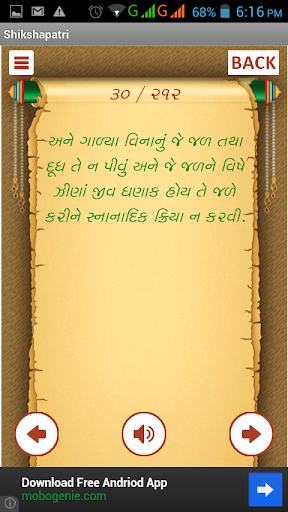 68% 6:16 PM
Shikshapatri
BACK
૩૦ / ૨૧૨
અને ગાળ્યા વિનાનું જે જળ તથા
દૂધ તે ન પીવું અને જે જળને વિષે
ઝીણાં જીવ ઘણાક હોય તે જળે
કરીને સ્નાનાદિક ક્રિયા ન કરવી.
Download Free Andriod App
mobogenie.com